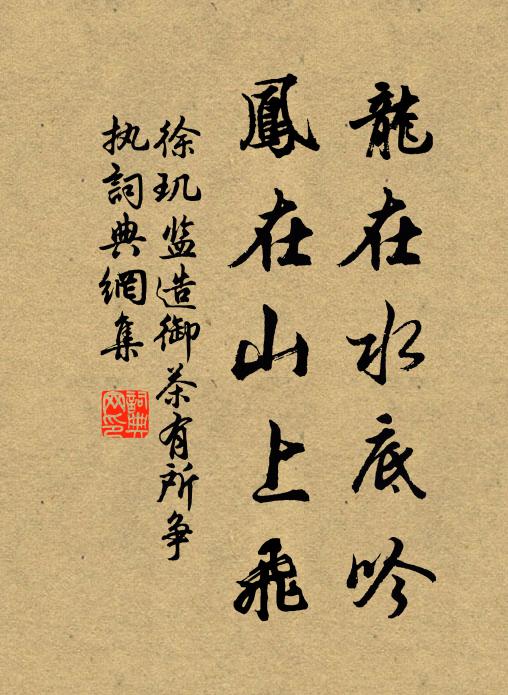 龍在水底吟
鳳在山上飛
徐玑监造御茶有所争
执詞典網集
詞典
网印